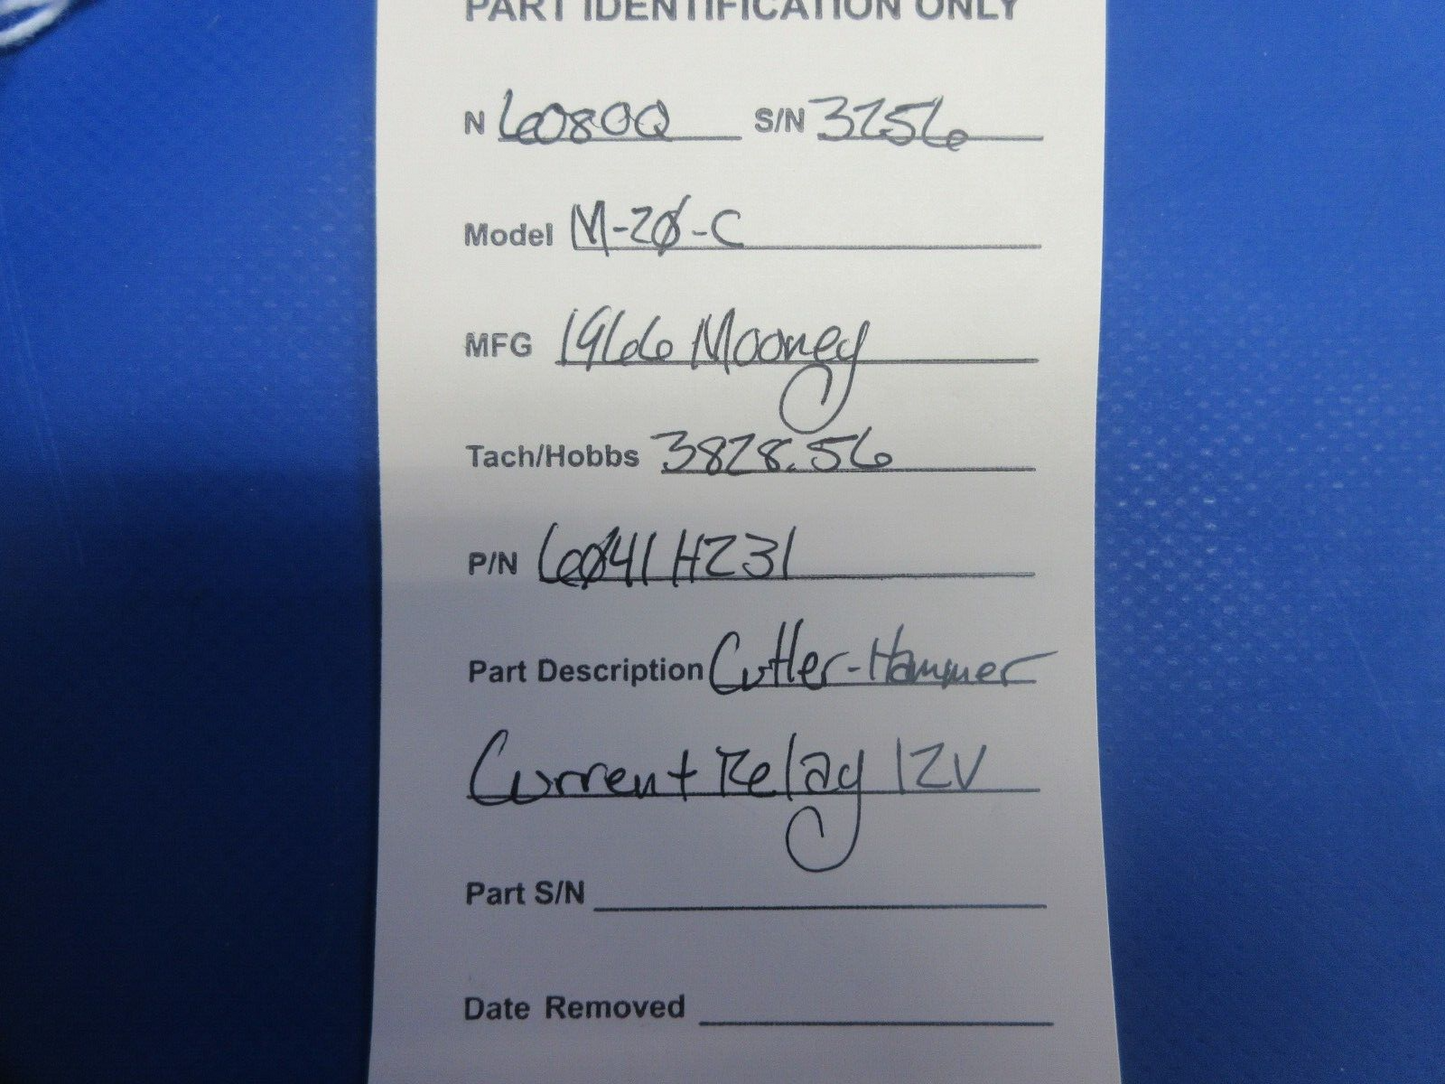 PART IDENTIFICATION ONLY
N 6080Q S/N 3256
Model M-20-C
MFG 1966 Mooney
Tach/Hobbs 3828.56
P/N 6041H231
Part Description Cutler-Hammer
Current Relay 12V
Part S/N
Date Removed